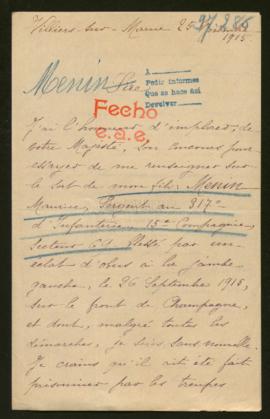 97.886
Villiers-sur-Marne 25
1915
Menin Sire
A
Pedir informes
Que se hace así
Devolver
Fecho
e.a.e.
J'ai l'honneur d'implorer, de
votre Majesté, son concours pour
essayer de me renseigner sur
le sort de mon fils, Menin
Maurice, Sergent au 317e
d'Infanterie, 15e Compagnie,
Secteur 61 Blessé par un
éclat d'obus à la jambe
gauche, le 26 Septembre 1915,
sur le front de Champagne,
et dont, malgré toutes les
démarches, je suis sans nouvelle.
Je crains qu'il ait été fait
prisonnier par les troupes